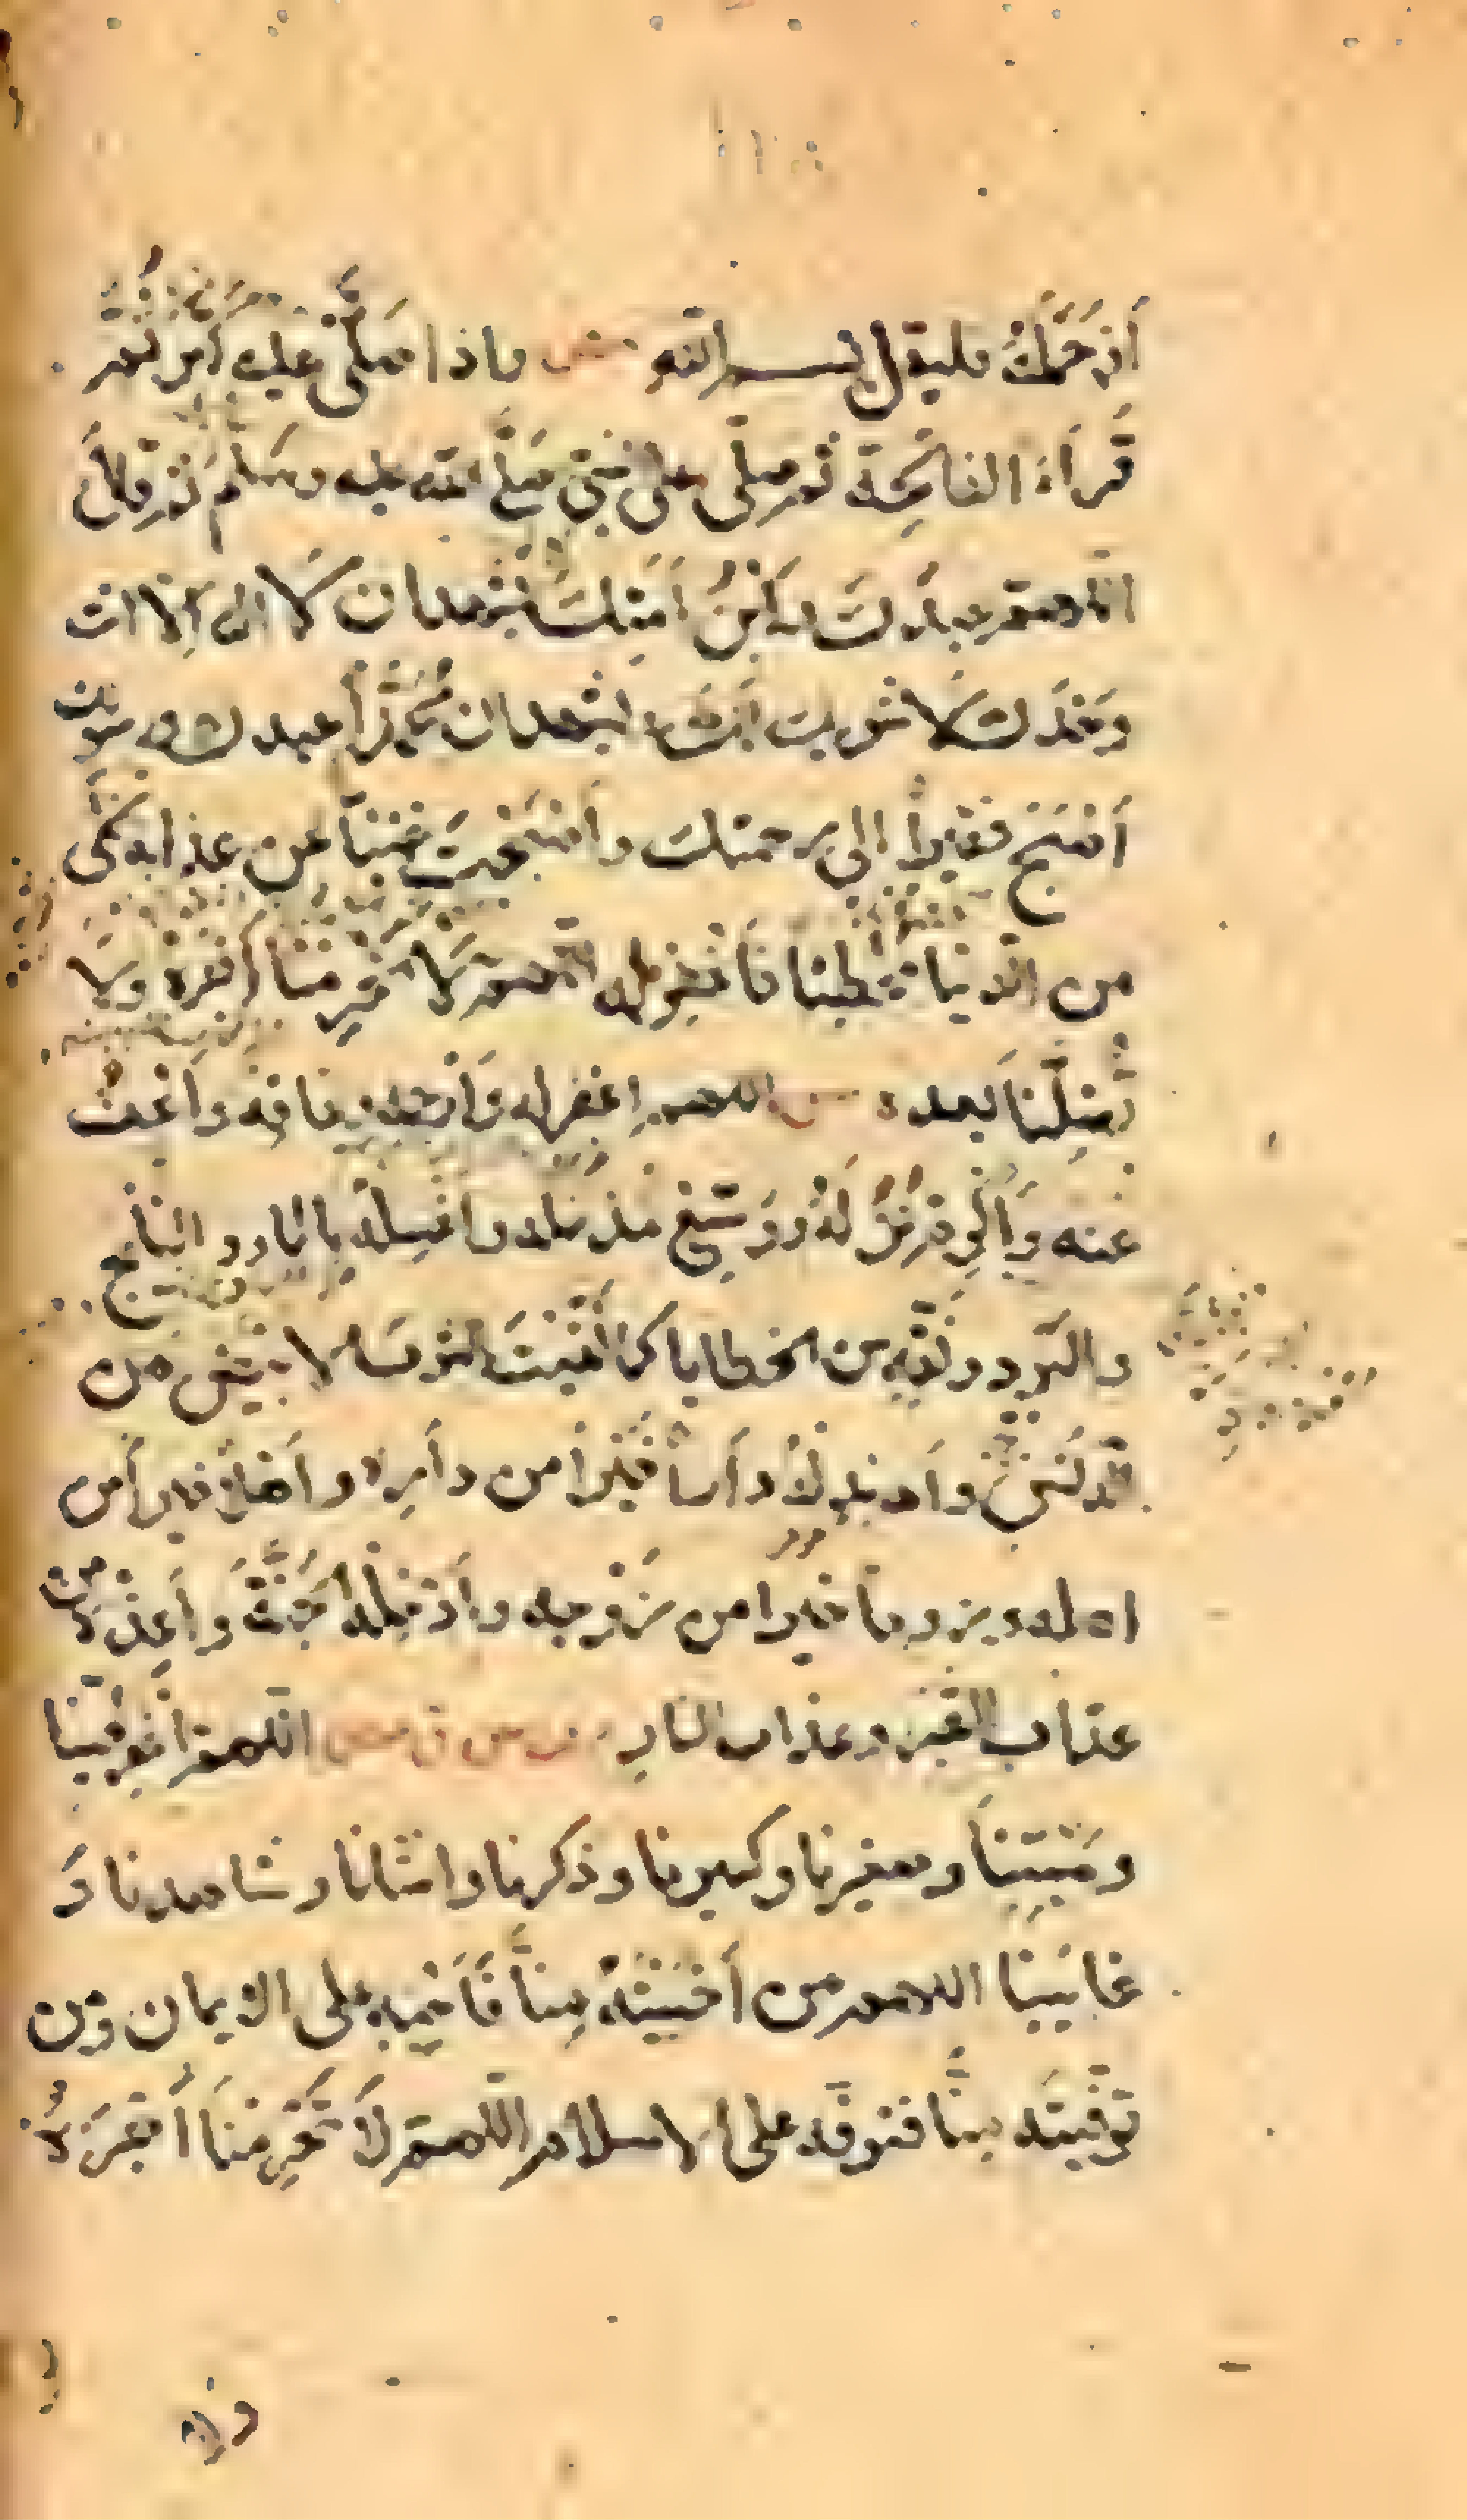 أو حمله فليقل بسم الله مص فاذا صلى عليه كبر ثم
قرأ الفاتحة ثم صلى على النبي صلى الله عليه وسلم ثم قال
اللهم عبدك وابن امتك يشهد ان لا اله الا انت
وحدك لا شريك لك ويشهد ان محمدا عبدك ورسولك
أصبح فقيرا الى رحمتك وأصبحت غنيا عن عذابه تخلى
من الدنيا وأهلها
فاغفر له اللهم لا تحرمنا أجره ولا
تضلنا بعده مس اللهم اغفر له وارحمه وعافه واعف
عنه وأكرم نزله ووسع مدخله واغسله بالماء والثلج
والبرد ونقه من الخطايا كما نقيت الثوب الابيض من
الدنس وأبدله دارا خيرا من داره وأهلا خيرا من
اهله وزوجا خيرا من زوجه وأدخله الجنة وأعذه من
عذاب القبر وعذاب النار اللهم اغفر لحينا
وميتنا وصغيرنا وكبيرنا وذكرنا وانثانا وشاهدنا و
غائبنا اللهم من أحييته منا فأحيه على الايمان ومن
توفيته منا فتوفه على الاسلام اللهم لا تحرمنا أجره
ولا